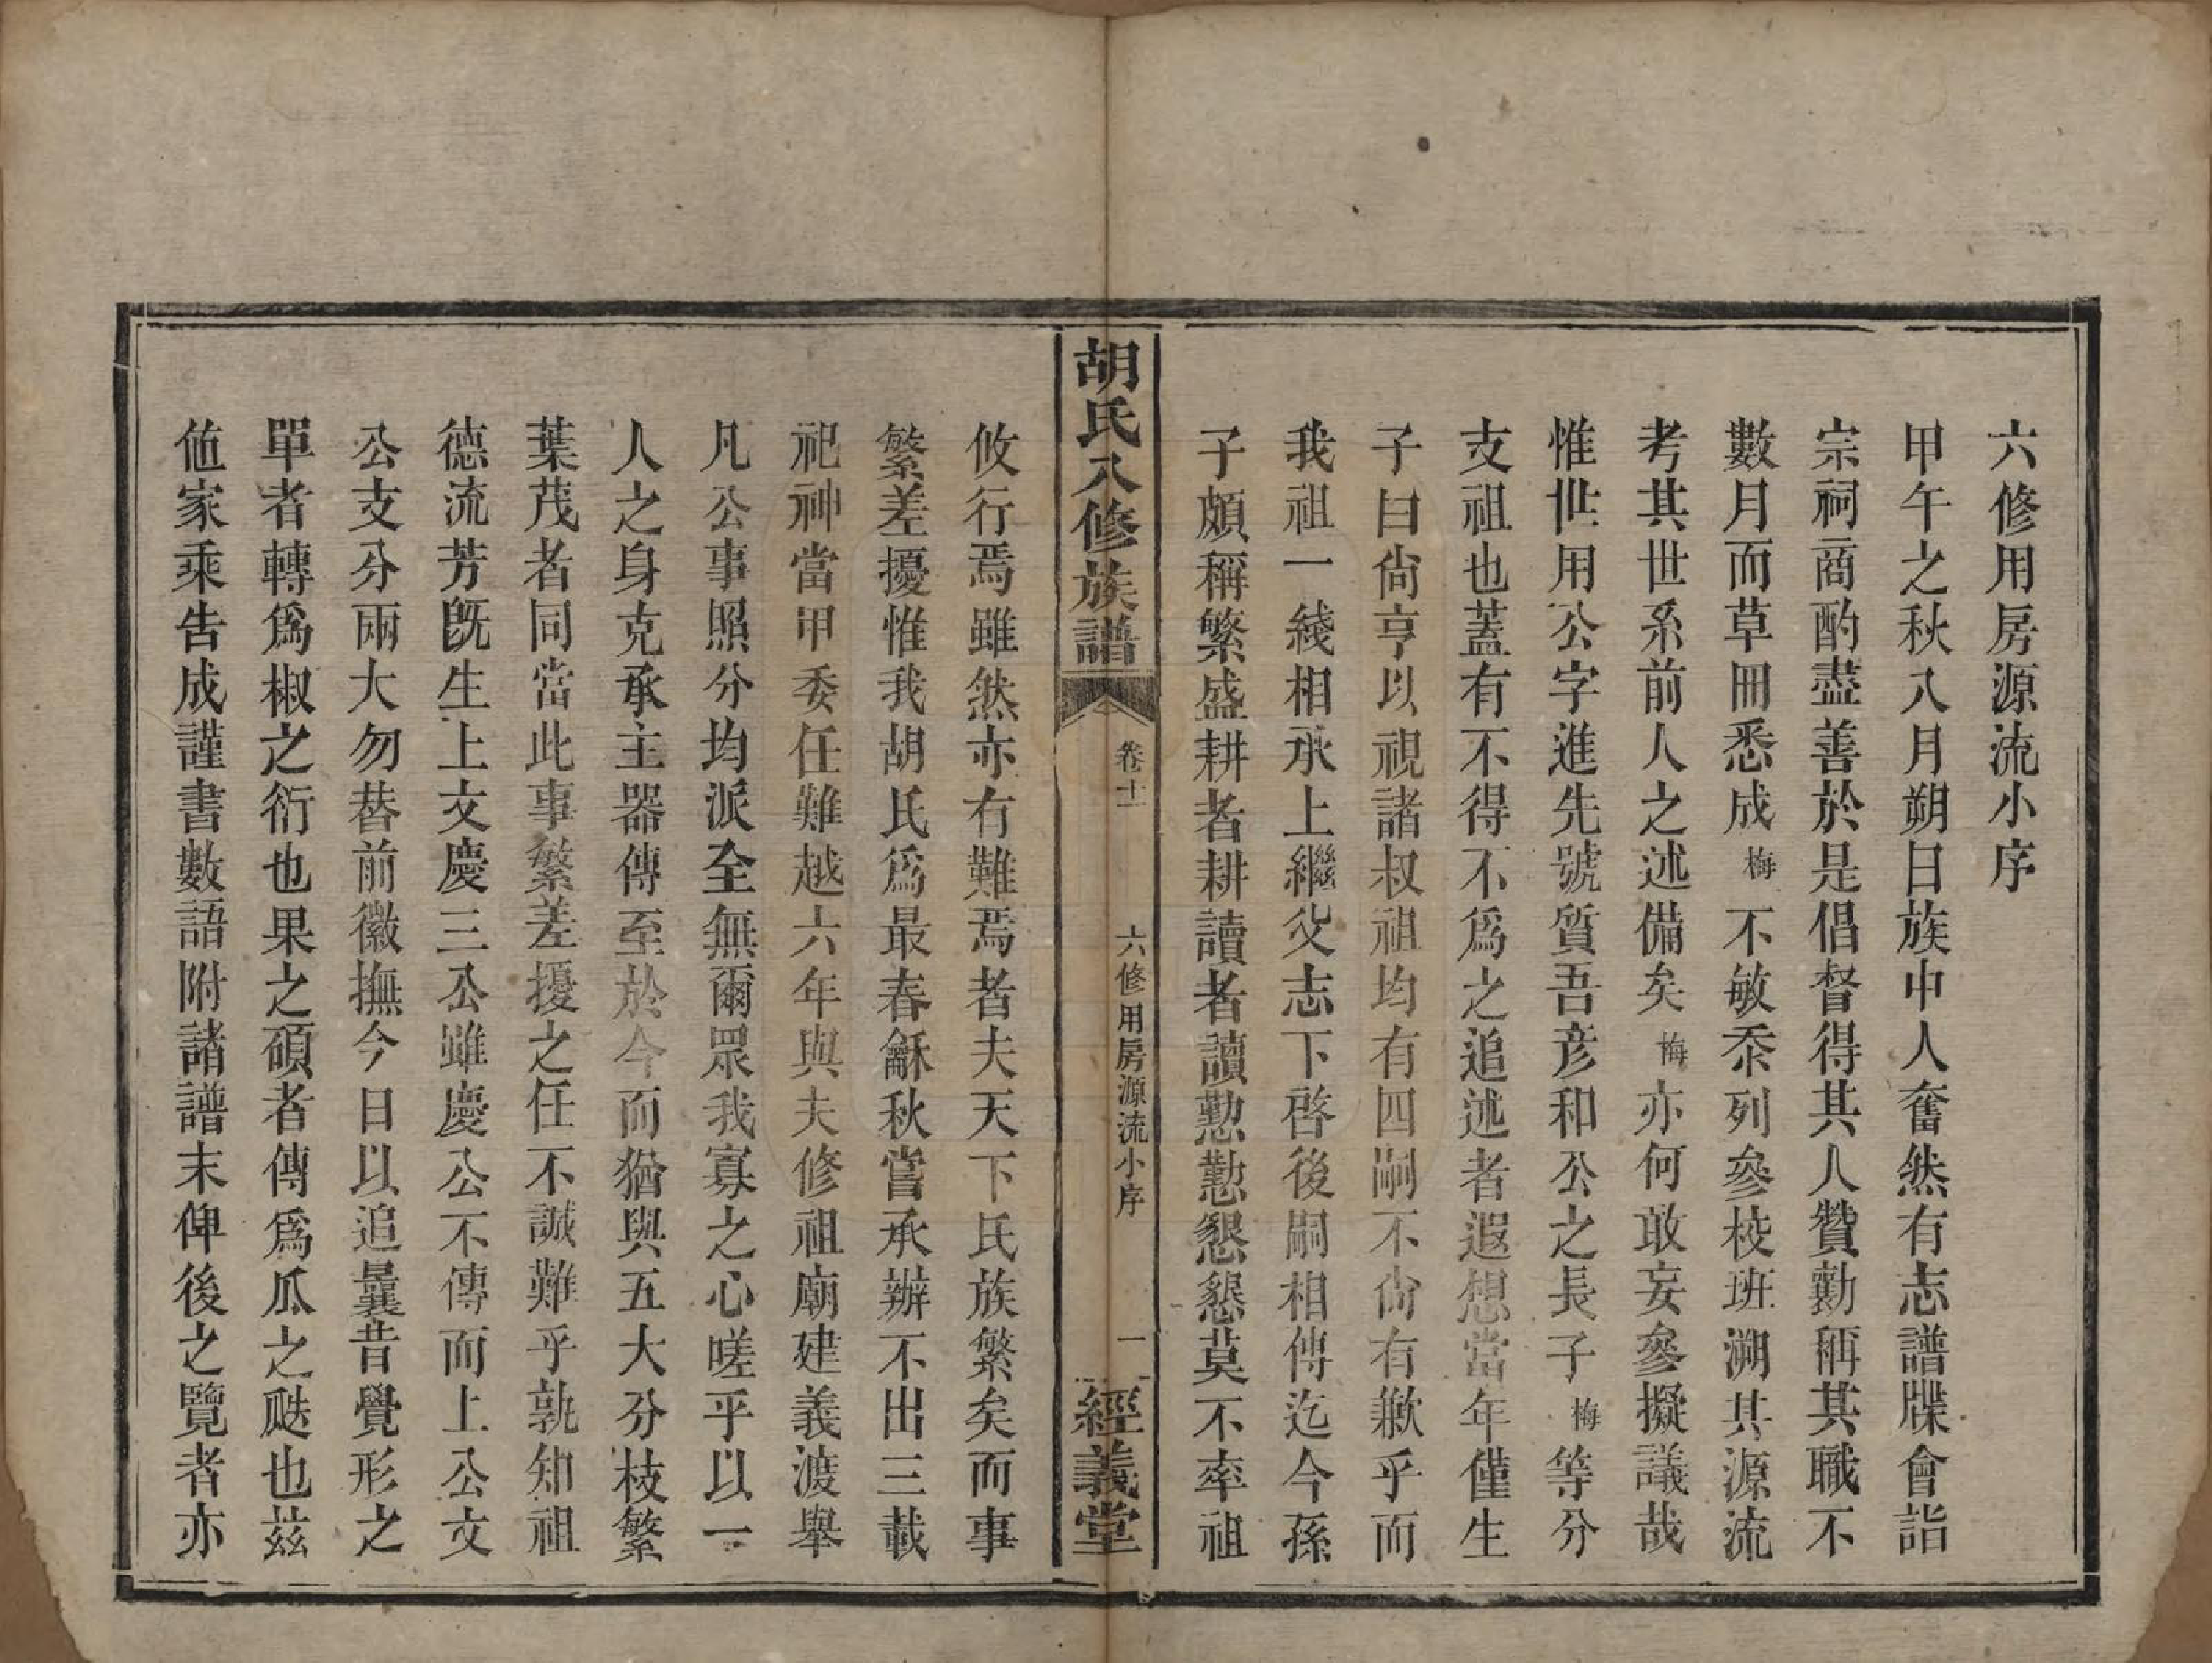 六修用房源流小序
甲午之秋八月朔日族中人奮然有志譜牒會詣
宗祠商酌盡善於是倡督得其人贊勷稱其職不
數月而草冊悉成梅不敏忝列參校班溯其源流
考其世系前人之述備矣梅亦何敢妄參擬議哉
惟世用公字進先號質吾彦和公之長子梅等分
支祖也蓋有不得不爲之追述者遐想當年僅生
子曰尙亨以視諸叔祖均有四嗣不尙有歉乎而
我祖一綫相承上繼父志下啓後嗣相傳迄今孫
子頗稱繁盛耕者耕讀者讀懃懃懇懇莫不率祖
胡氏八修族譜
卷十一
六修用房源流小序
一
經義堂
攸行焉雖然亦有難焉者夫天下氏族繁矣而事
繁差擾惟我胡氏爲最春龢秋嘗承辦不出三載
祀神當甲委任難越六年與夫修祖廟建義渡舉
凡公事照分均派全無爾眾我寡之心嗟乎以一
人之身克承主器傳至於今而猶與五大分枝繁
葉茂者同當此事繁差擾之任不誠難乎孰知祖
德流芳旣生上文慶三公雖慶公不傳而上公文
公支分兩大勿替前徽撫今日以追曩昔覺形之
單者轉爲椒之衍也果之碩者傳爲瓜之瓞也茲
值家乘告成謹書數語附諸譜末俾後之覽者亦